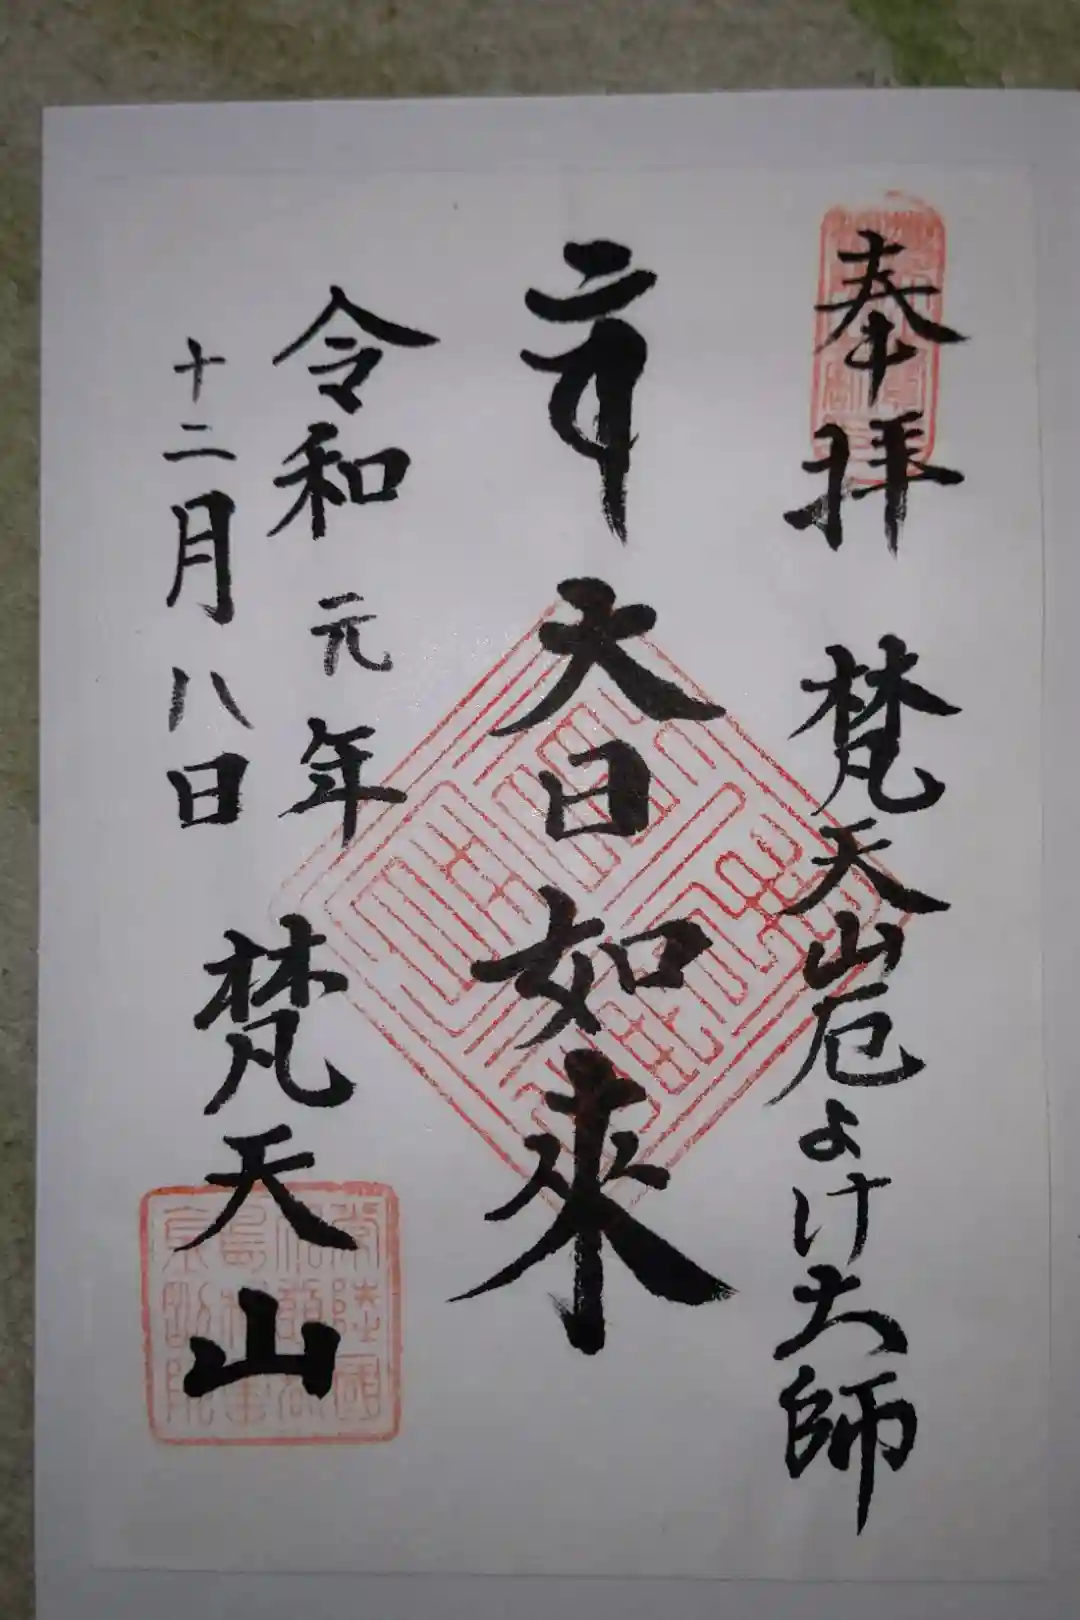 奉拝
梵天山厄よけ大師
大日如来
令和元年
十二月八日
梵天山